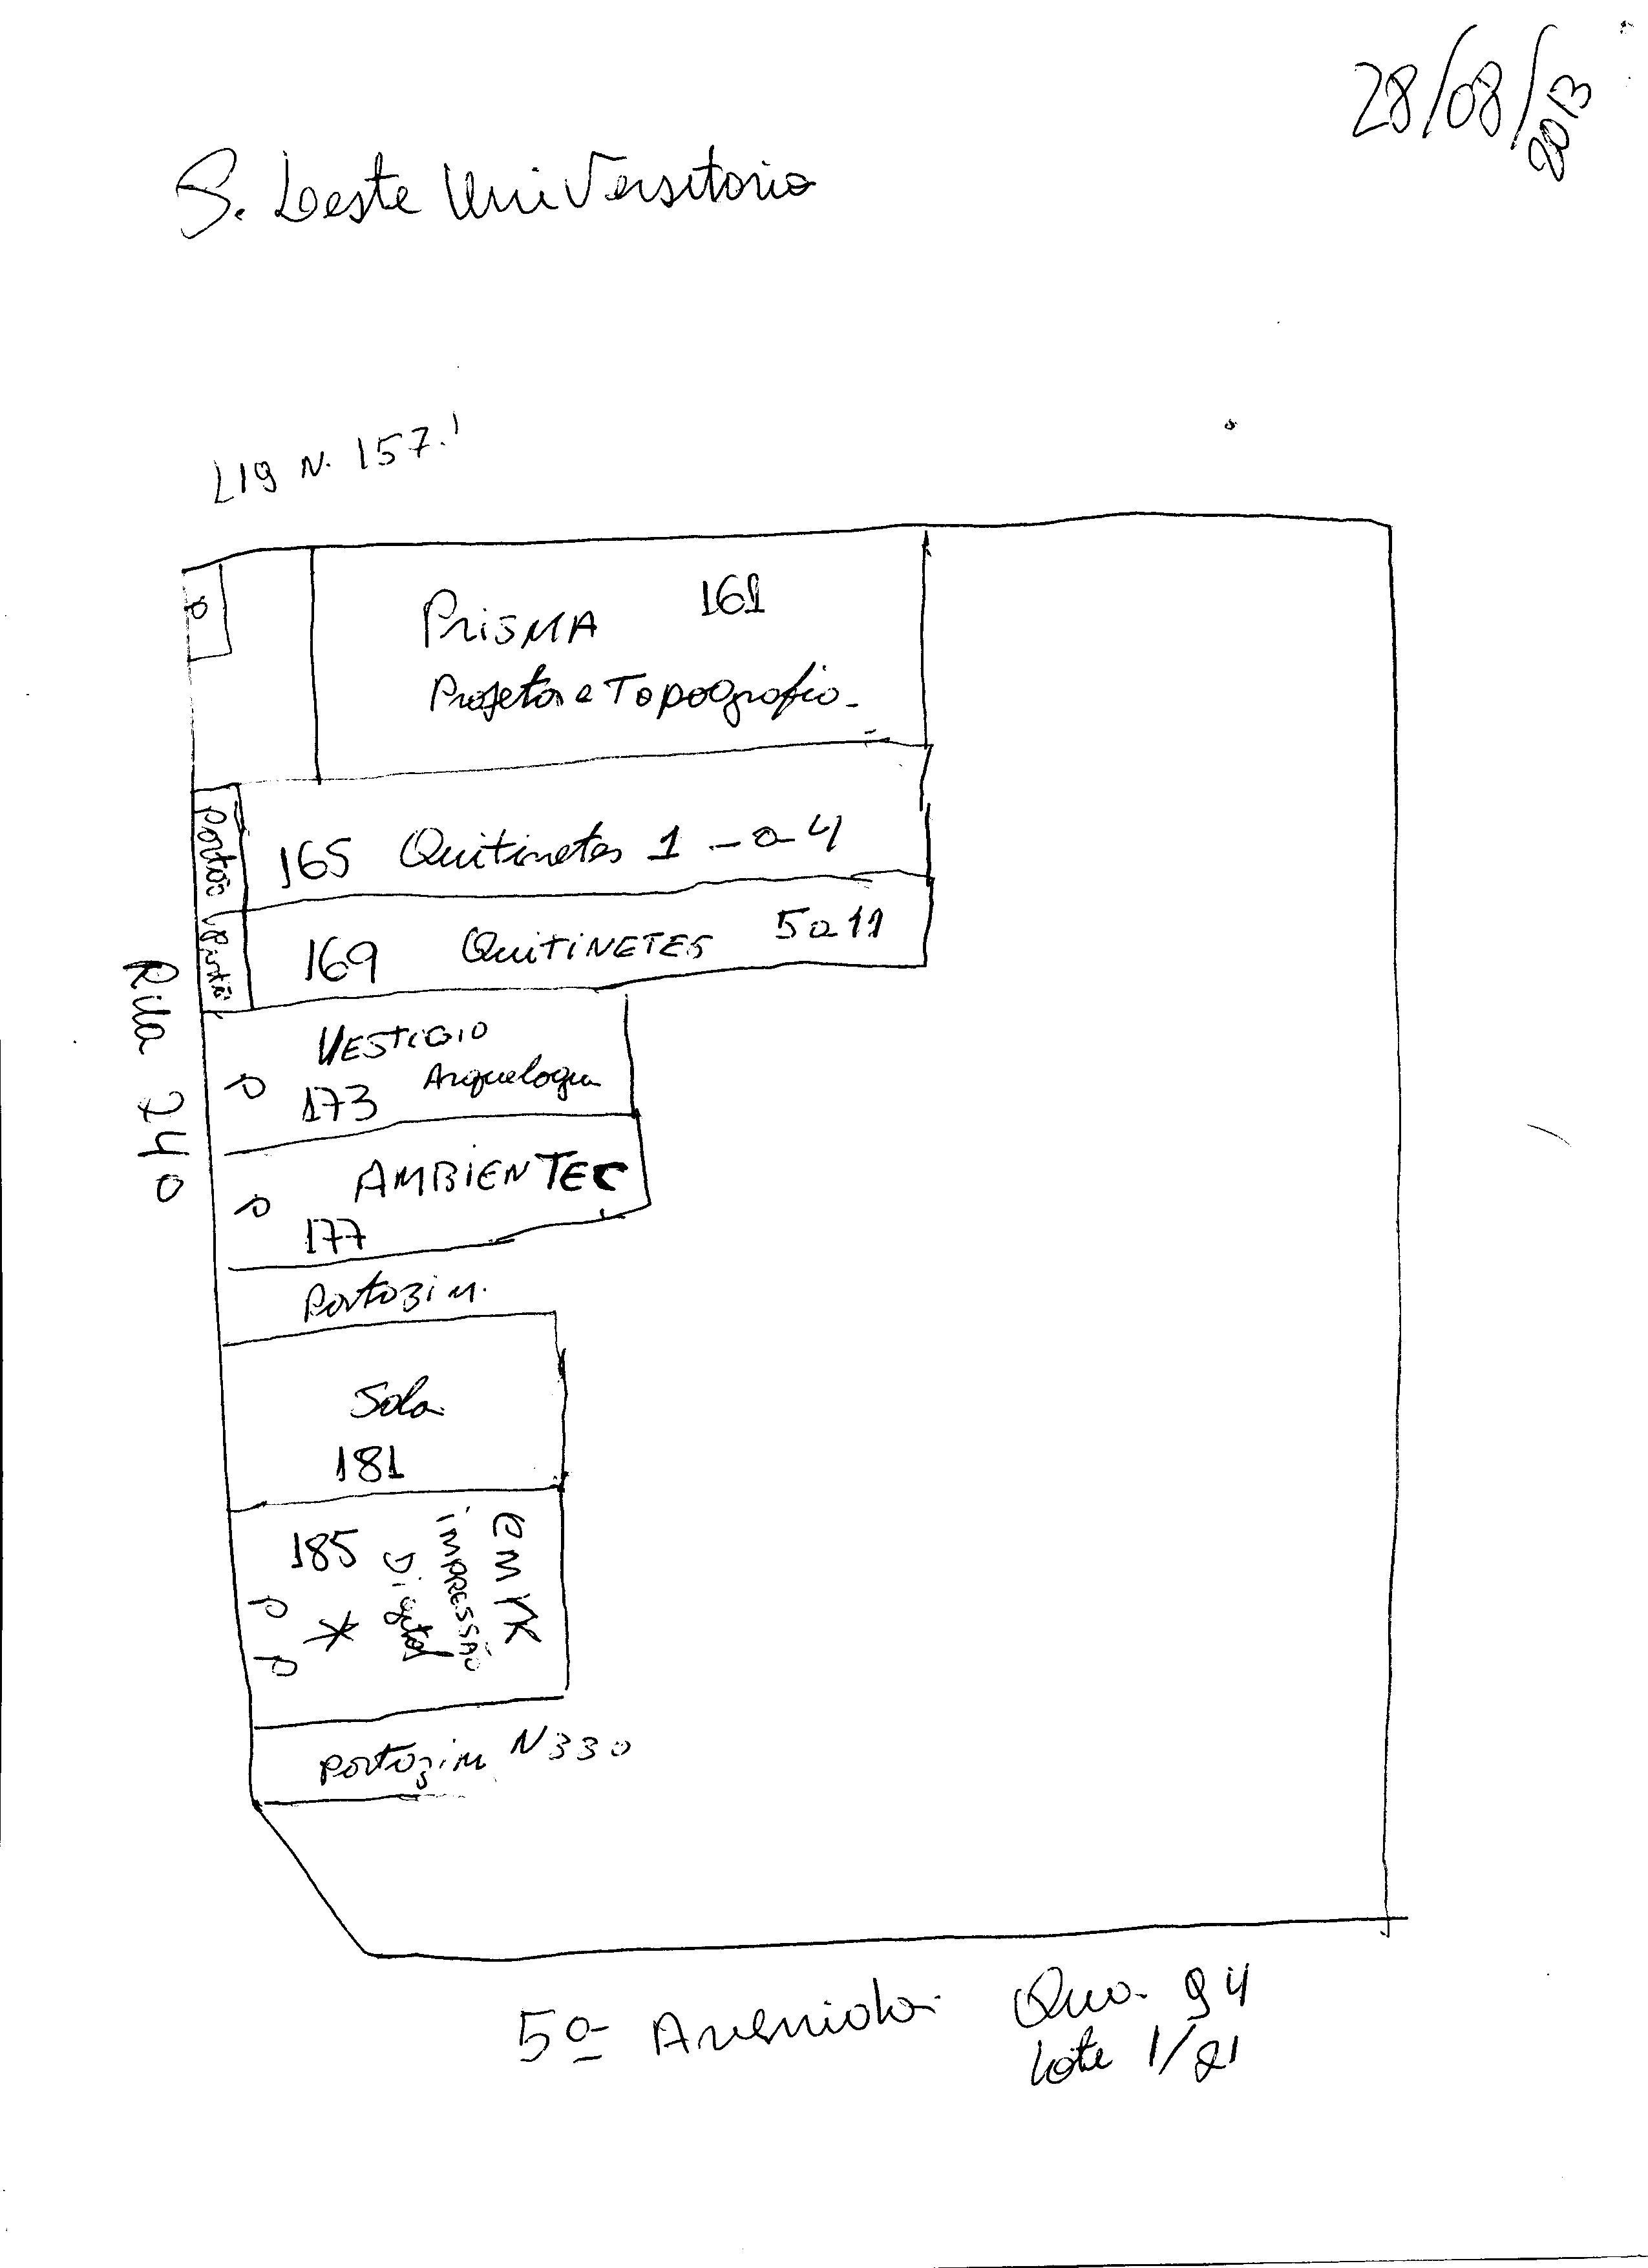 28/08/2013
S. Leste Universitario
Lig N. 157.
P
PRISMA 161
Projetos e Topografia
Portão
165 Quitinetes 1 - a 4
Portão
169 QUITINETES 5 a 11
Rua 240
VESTIGIO
P 173 Arquelogia
AMBIENTEC
P 177
Portozim.
Sala
181
185
emyk
IMPRESSÃO
Digital
P P *
Portozim N 330
5ª Avenida Qua. 94
Lote 1/21